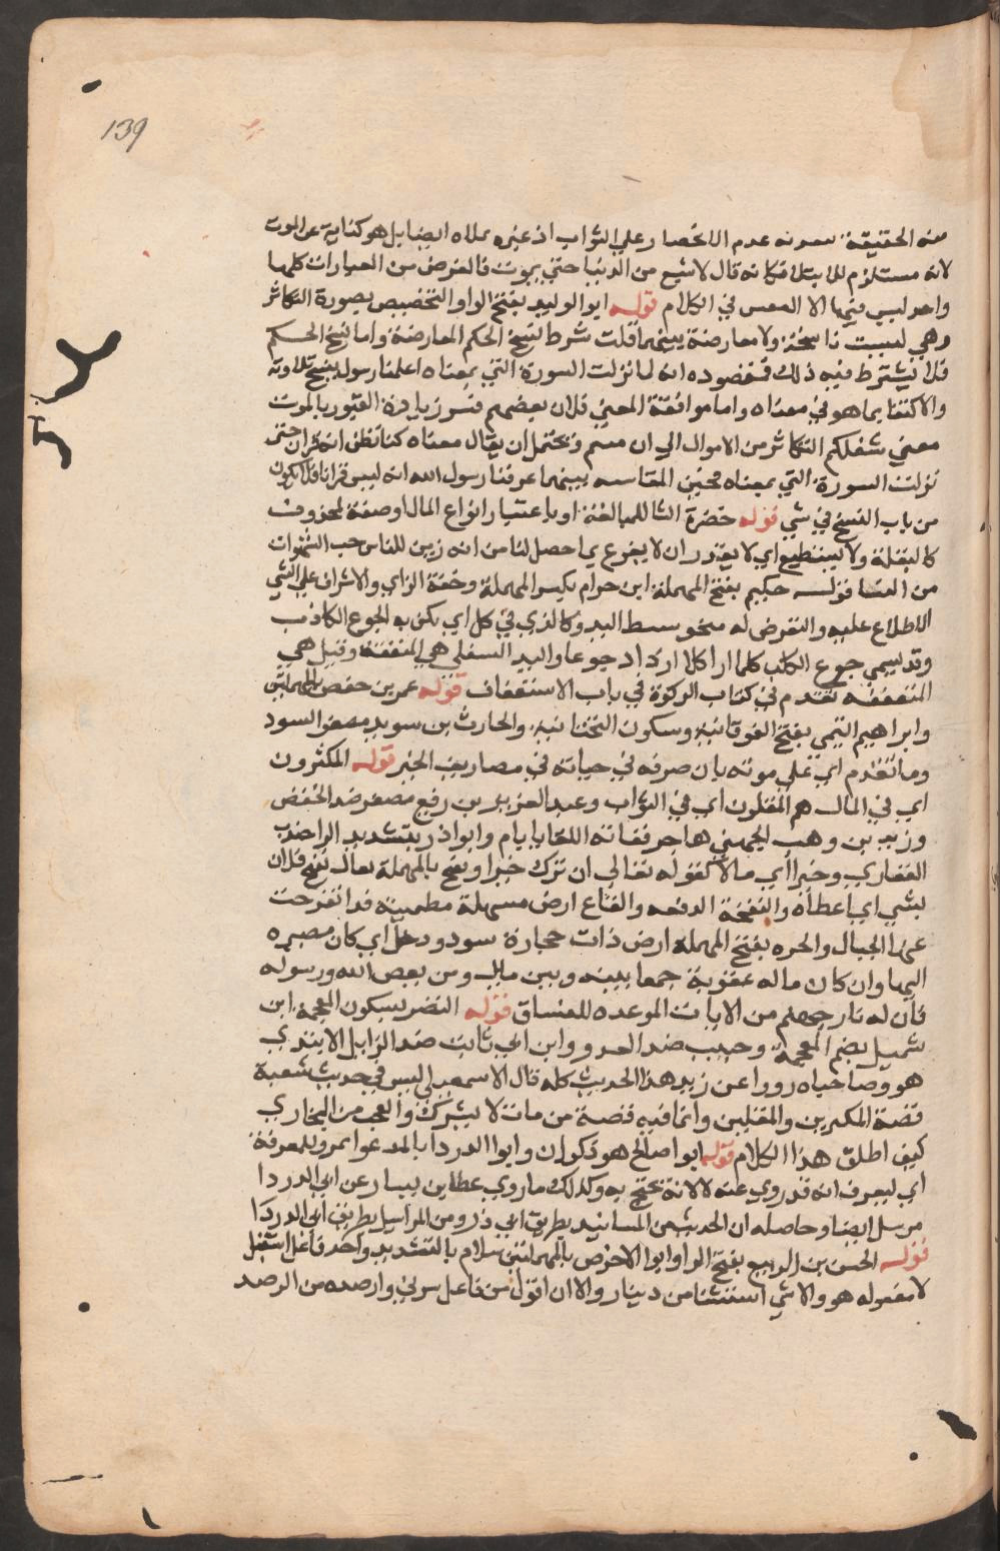 139
منه الحقيقة بعدنه عدم الانحصار علي التراب اذ غيره يملاه ايضا بل هو كناية عن الموت
لانه مستلزم للامتلا فكانه قال لا شبع من الدنيا حتي يموت فالغرض من العبارات كلها
واحد ليس فيها الا التفنن في الكلام قوله ابو الوليد بفتح الواو والتخصيص بصورة التكاثر
وهي ليست ناسخة ولا معارضة بينهما قلت شرط نسخ الحكم المعارضة واما نسخ الحكم
فلا يشترط فيه ذلك فمقصوده انه لما نزلت السورة التي بمعناه اعلمنا رسول بنسخ تلاوته
والاكتفا بما هو في معناه واما موافقة المعني فلان بعضهم فسر زيارة القبور بالموت
معني شغلكم التكاثر من الاموال الي ان متم ويحتمل ان يقال معناه كنا نظن انه قران حتي
نزلت السورة التي بمعناه فحين المقايسه بينهما عرفنا رسول الله انه ليس قرانا فلا يكون
من باب النسخ في شي قوله خضرة التا للمبالغة او باعتبار انواع المال او صفة لمحذوف
كالبقلة ولا نستطيع اي لا يقدر ان لا يفرح بما حصل لنا من انه زين للناس حب الشهوات
من النسا قوله حكيم بفتح المهملة ابن حزام بكسر المهملة وخفة الزاي والاشراف علي الشي
الاطلاع عليه والتعرض له بنحو بسط اليد وكالذي في كل اي بكن به الجوع الكاذب
وقد يسمي جوع الكلب كلما ازداد اكلا ازداد جوعا واليد السفلي هي المنفقة وقيل هي
المتعففه تقدم في كتاب الزكوة في باب الاستعفاف قوله عمر بن حفص بالمهملتين
وابراهيم التيمي بفتح الفوقانية وسكون التحتانية والحارث بن سويد مصغر السود
وما تقدم اي علي موته بان صرفه في حياته في مصاريف الخير قوله المكثرون
اي في المال هم المقلون اي في الثواب وعبد العزيز بن رفيع مصغر ضد الخفض
وزيد بن وهب الجهني هاجر ففاته اللقا بايام وابو اذر بتشديد الرا جندب
الغفاري وخيرا اي مالا كقوله تعالي ان ترك خيرا ونفح بالمهملة يقال نفح فلان
بشي اي اعطاه والنفحة الدفعه والقاع ارض سهلة مطمينة قد انفرجت
عنها الجبال والحره بفتح المهمله ارض ذات حجارة سود ودخل اي كان مصيره
اليها وان كان ماله عقوبة جمعا بينه وبين ما وبين يعص الله ورسوله
فان له نار جهنم من الايات الموعده للفساق قوله النضر بسكون المعجمة ابن
شميل بضم المعجمة وحبيب ضد العدو وابن ابي ثابت ضد الزايل الا
هو وصاحباه رووا عن زيد هذا الحديث كله قال الاسمعيلي ليس في حديث شعبة
قصة المكثرين والمقلين وانما فيه قصة من مات لا يشرك والعجب من البخاري
كيف اطلق هذا الكلام قوله ابو اصالح هو ذكوان وابوا الدردا بالمد عوامرو للمعرفة
اي ليعرف انه قد روي عنه لا لانه يحتج به وكذلك ما روي عطا بن يسار عن ابي الدردا
مرسل ايضا وحاصله ان الحديث من المسانيد بطريق ابي ذر ومن المراسيل بطريق ابي الدردا
قوله الحسن بن الربيع بفتح الرا وابو الاحوص بالمهملتين سلام بالتشديد واحد فاعل استقبل
لا مفعوله هو والا شي استثنا من دينار والا ان اقول من فاعل سرني وارصده من الرصد